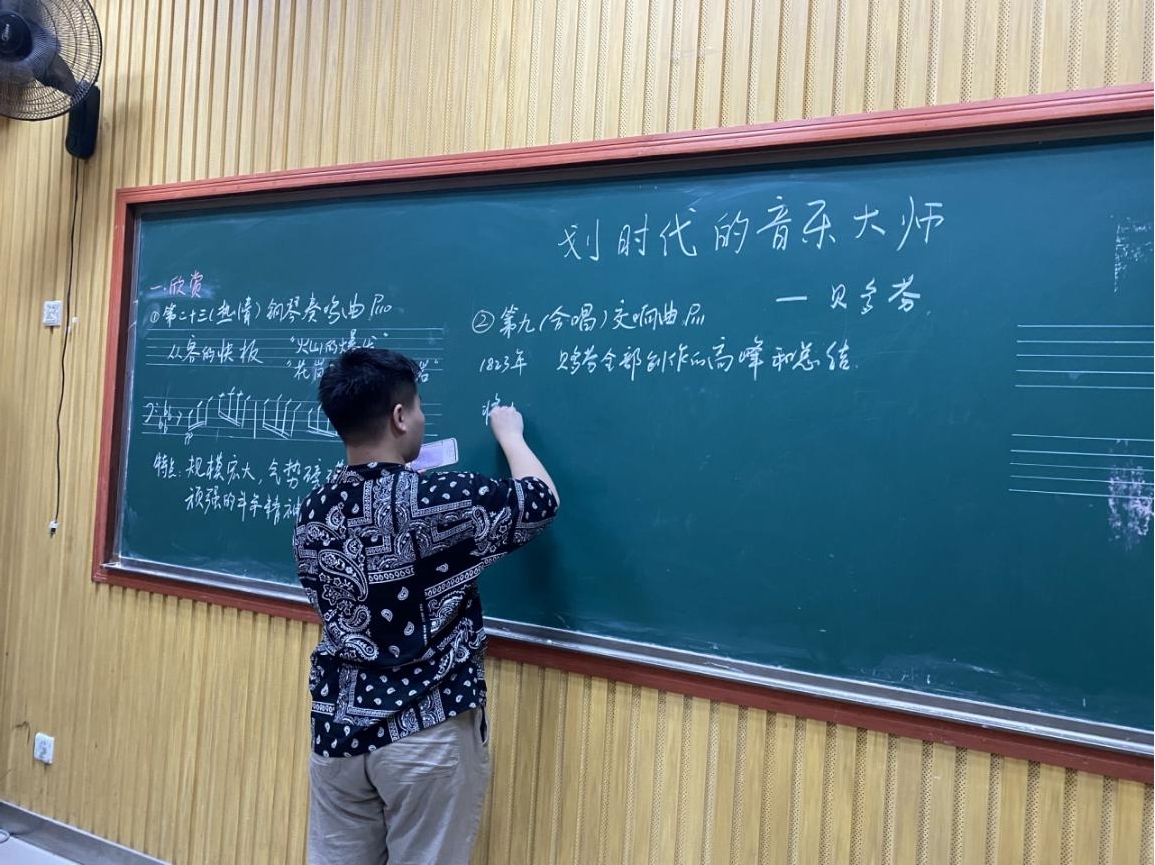 划时代的音乐大师
— 贝多芬
一.欣赏
①第二十三(热情)钢琴奏鸣曲
从容的快板 "火山的爆发"
"花岗
pp
特点:规模宏大,气势
顽强的斗争精神
②第九(合唱)交响曲
1823年 贝多芬全部创作的高峰和总结.